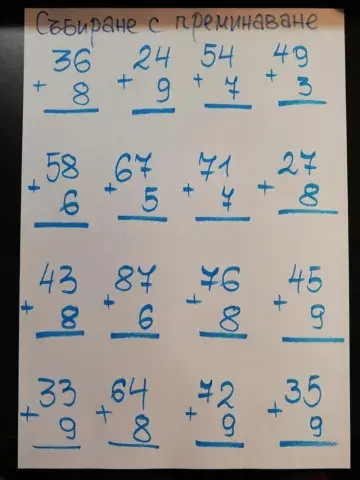 Събиране с преминаване
36 24 54 49
+ 8 + 9 + 7 + 3
58 67 71 27
+ 6 + 5 + 7 + 8
43 87 76 45
+ 8 + 6 + 8 + 9
33 64 72 35
+ 9 + 8 + 9 + 9